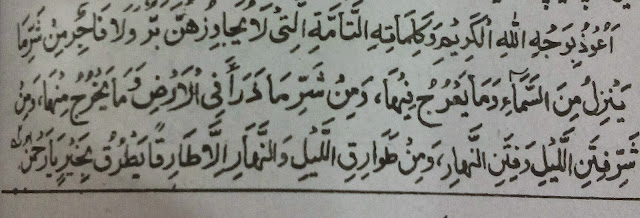 اَعُوْذُ بِوَجْهِ اللهِ الْكَرِيْمِ وَكَلِمَاتِهِ التَّآمَّةِ الَّتِيْ لَا يُجَاوِزُهُنَّ بَرٌّ وَلَا فَاجِرٌ مِنْ شَرِّ مَا
يَنْزِلُ مِنَ السَّمَآءِ وَمَا يَعْرُجُ فِيْهَا، وَمِنْ شَرِّ مَا ذَرَأَ فِي الْاَرْضِ وَمَا يَخْرُجُ مِنْهَا، وَمِنْ
شَرِّ فِتَنِ اللَّيْلِ وَفِتَنِ النَّهَارِ، وَمِنْ طَوَارِقِ اللَّيْلِ وَالنَّهَارِ اِلَّا طَارِقًا يَطْرُقُ بِخَيْرٍ يَا رَحْمٰنُ